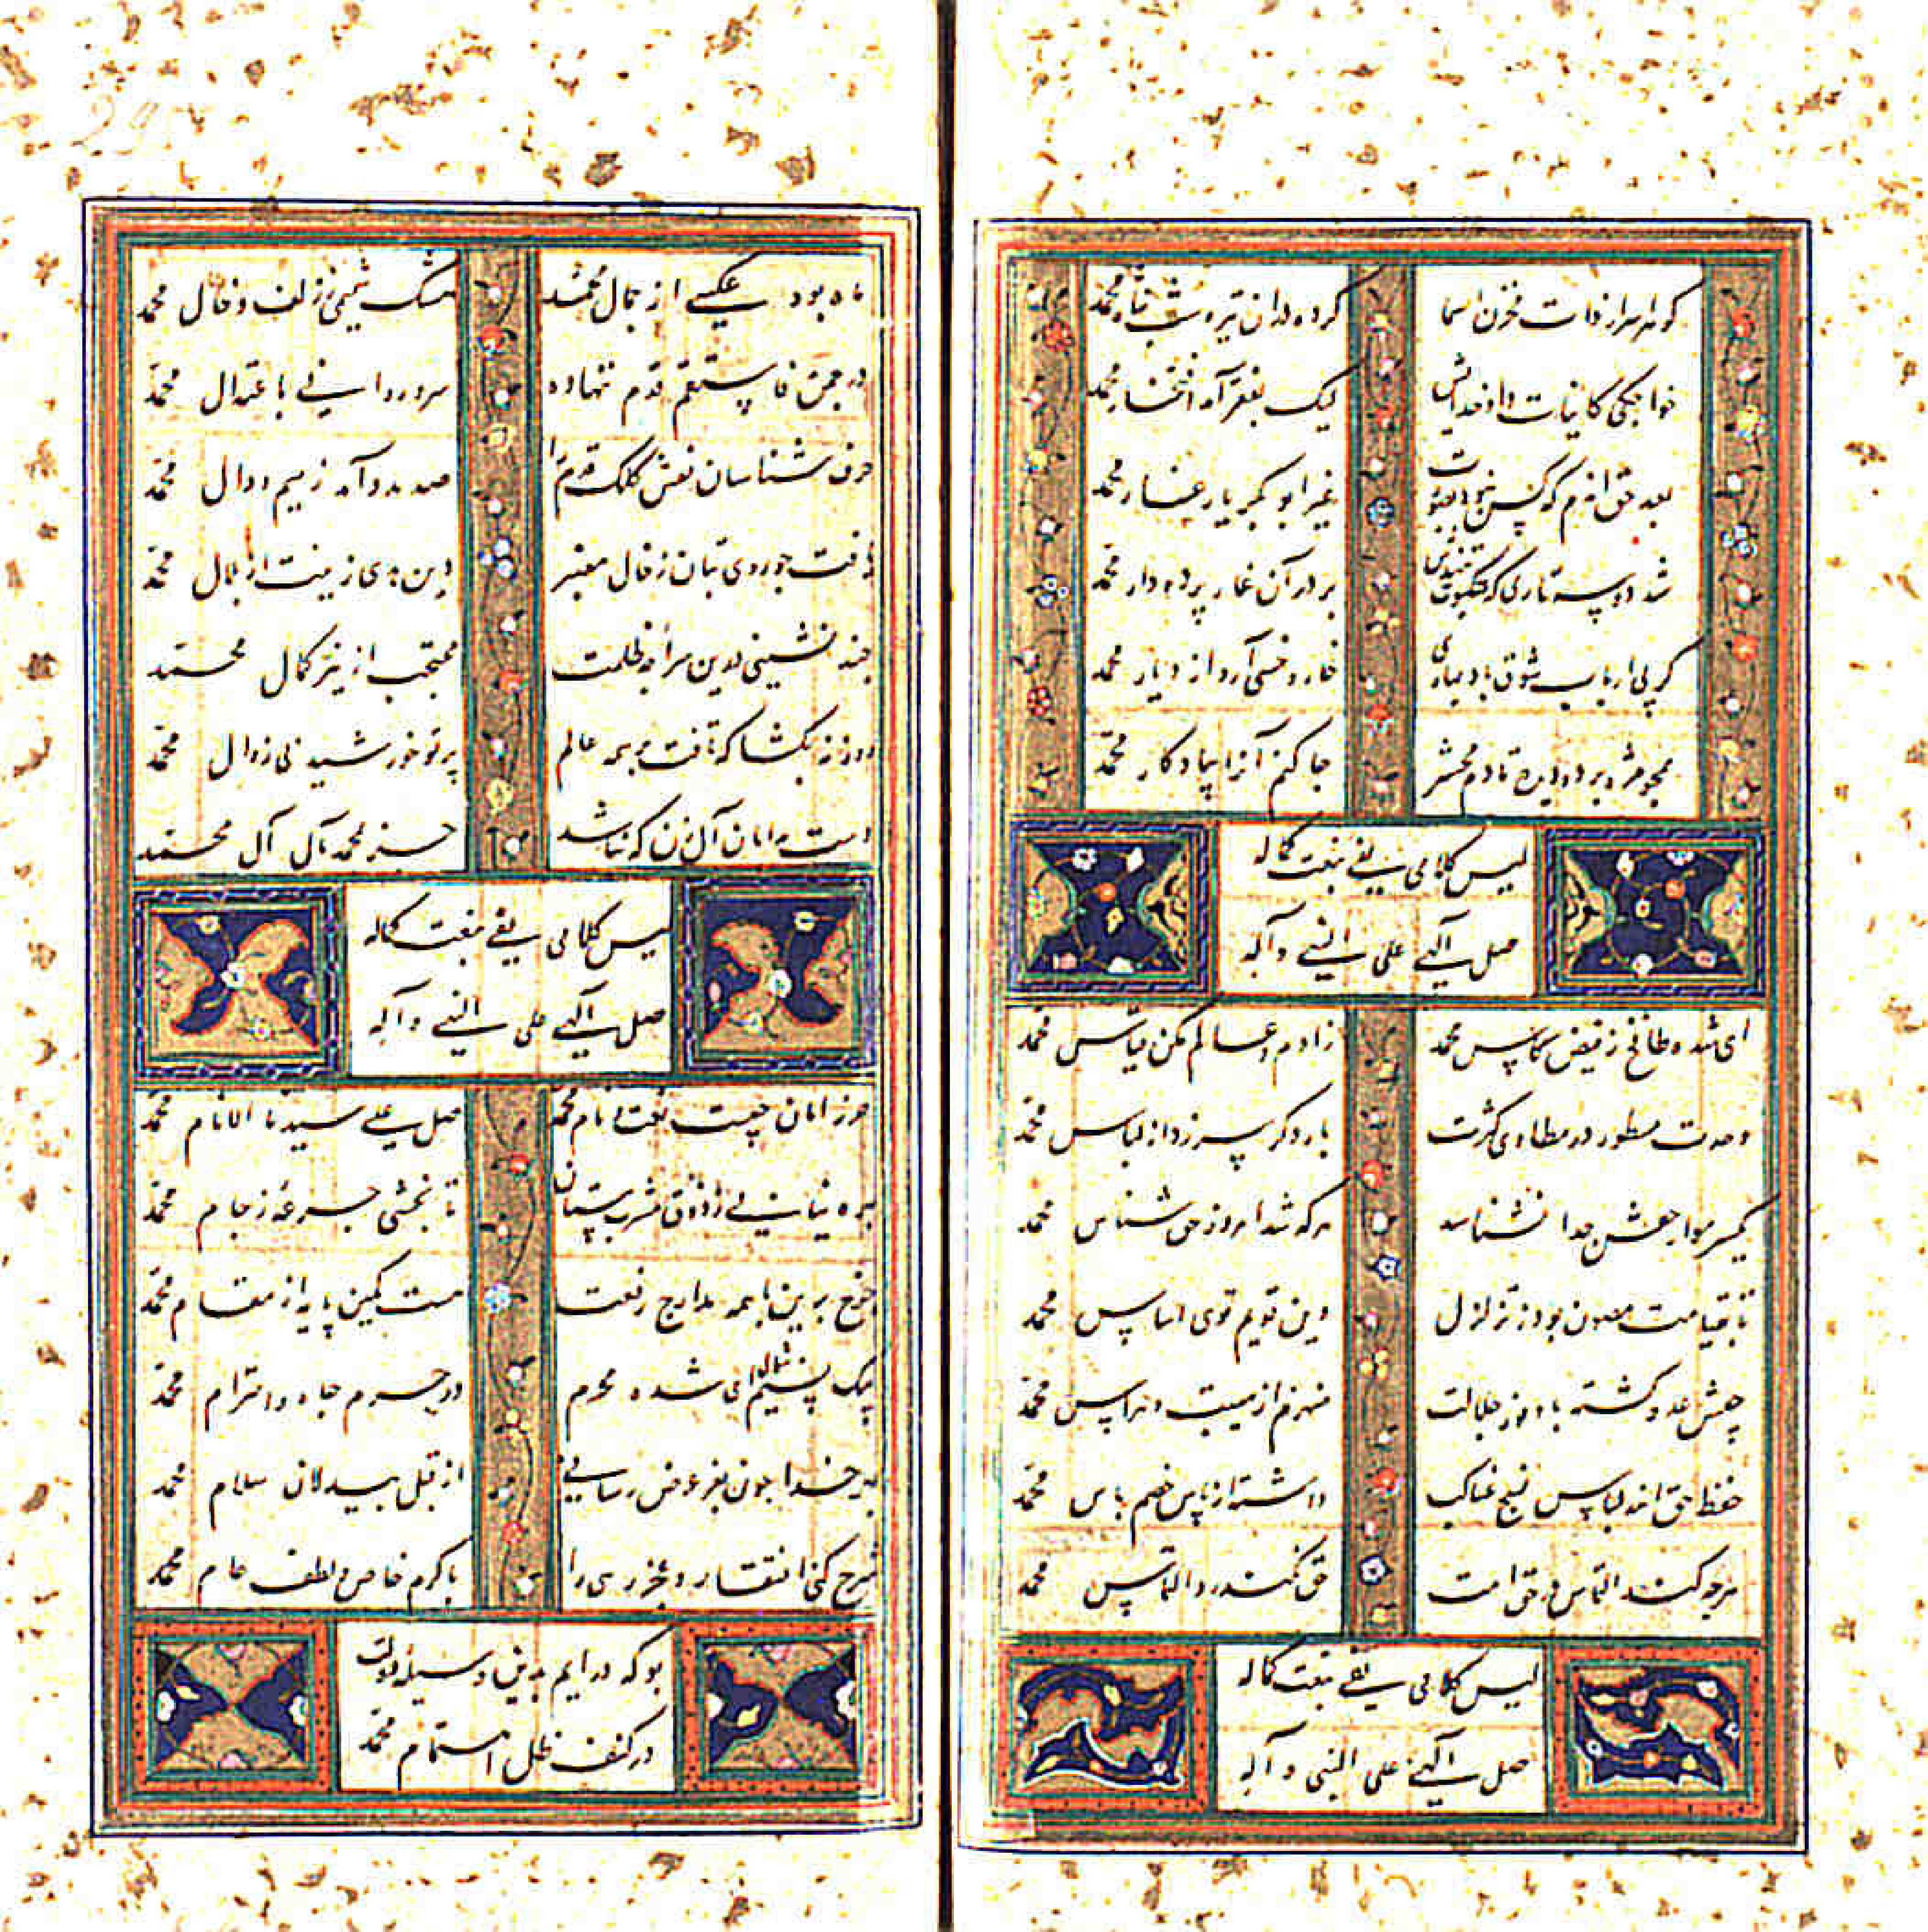 گوهر اسرار ذات مخزن اسما کرده در ان تیره شب نثار محمد
خواجگی کاینات داد خدایش لیک بفقر آمد افتخار محمد
بعد حق انرم که کس نبود غیر ابو بکر یار غار محمد
شد دو سه تاری که عنکبوت تنیدش بر در آن غار پرده دار محمد
کر پی ارباب شوق باد بهاری خار و خسی آرد از دیار محمد
همچو مژه بر دو دیده تا دم محشر جا کنم آنرا بیادکار محمد
لیس کلامی یفی بنعت کماله
صل الهی علی النبی و آله
ای شده طافح ز فیض کاس محمد ز ادم و عالم مکن قیاس محمد
وحدت مسطور در مطاوی کثرت بار دکر سر زد از لباس محمد
کیسر مو از حقش جدا نشناسد هرکه شد امروز حق شناس محمد
تا بقیامت مصون بود ز تزلزل دین قویم قوی اساس محمد
جیش عدو کشته با وفور جلالت منهزم از هیبت و هراس محمد
حفظ حق اندر لباس نسج عناکب داشته از باس خصم پاس محمد
هرچه کند التماس در حق امت حق نکند رد التماس محمد
لیس کلامی یفی بنعت کماله
صل الهی علی النبی و آله
ماه بود عکسی از جمال محمد مشک شمیمی ز زلف و خال محمد
در چمن فاستقم قدم ننهاده سرو روانی باعتدال محمد
حرف شناسان نقش کلک قدم را صد مدد آمد ز میم و دال محمد
یافت چو روی بتان ز خال معنبر دین هدی زینت از بلال محمد
چند نشینی درین سراچه ظلمت محتجب از نیر کمال محمد
روزنه بکشا که تافت بر همه عالم پرتو خورشید بی زوال محمد
دست بدامان آل زن که نباشد جز محمد مآل آل محمد
لیس کلامی یفی بنعت کماله
صل الهی علی النبی و آله
حرز امان چیست نعت نام محمد صل علی سیدنا الانام محمد
بهره نیابی ز ذوق مشرب مستان تا نچشی جرعه ز جام محمد
چرخ برین با همه مدارج رفعت هست کمین پایه از مقام محمد
پیک نسیم شمال ای شده محرم در حرم جاه و احترام محمد
بهر خدا چون بعز عرض رسانی از قبل بیدلان سلام محمد
شرح کن افتقار و عجز رهی را با کرم خاص و لطف عام محمد
بو که در ایم بدین وسیله دولت
در کنف ظل اهتمام محمد